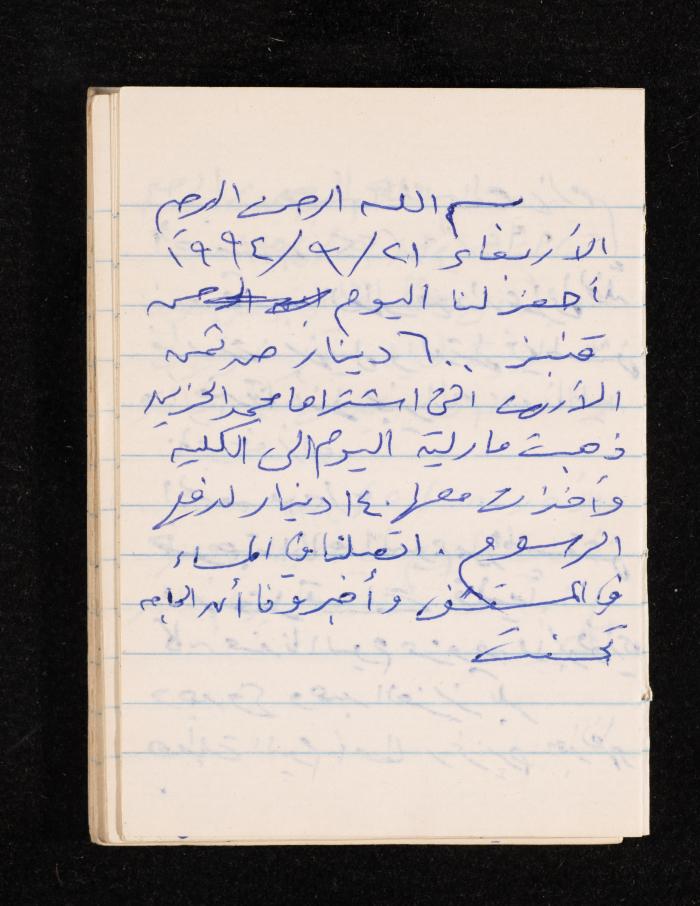 بسم الله الرحمن الرحيم
الأربعاء ٢١/٩/١٩٩٤
أحضر لنا اليوم حسن
٦٠٠ دينار من ثمن
الأرض التي اشتراها محمد
ذهبت مارلية اليوم الى الكلية
وأخذت معها ١٤٠ دينار لدفع
الرسوم . اتصلنا في المساء
في المستشفى وأخبرونا أن الحاجه
تحسنت